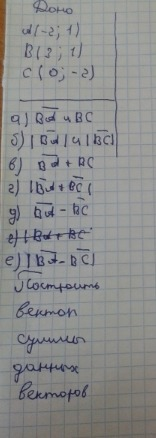 Дано
A(-2; 1)
B(3; 1)
C(0; -2)
а) BA и BC
б) |BA| и |BC|
в) BA + BC
г) |BA + BC|
д) BA - BC
е) |BA + BC|
е) |BA - BC|
Построить
вектор
суммы
данных
векторов